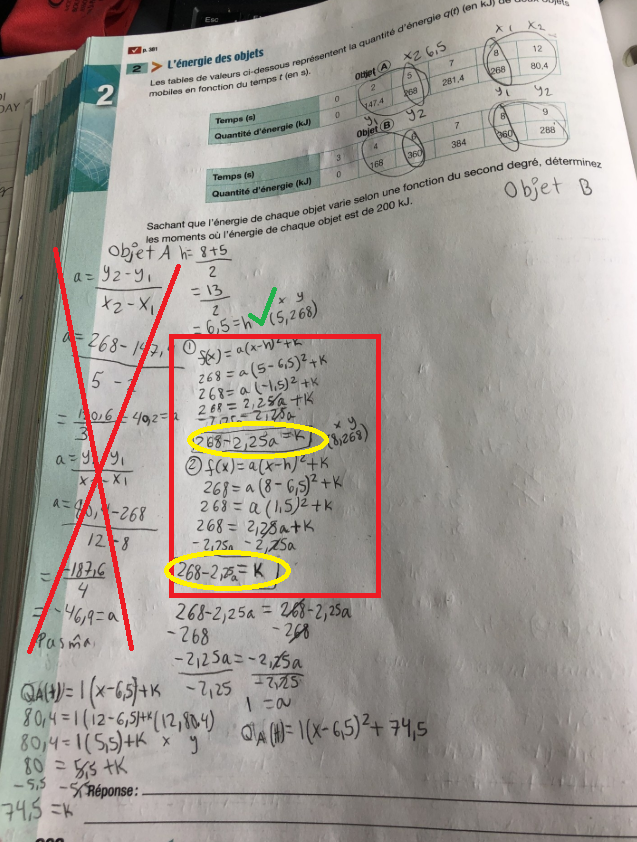 Esc
p. 361
2 > L'énergie des objets
Les tables de valeurs ci-dessous représentent la quantité d'énergie q(t) (en kJ) de deux objets
mobiles en fonction du temps t (en s).
2
x2 6,5 x1 x2
Objet A
Temps (s) 0 2 5 7 8 12
Quantité d'énergie (kJ) 0 147,4 268 281,4 268 80,4
y1 y2 y1 y2
Objet B
Temps (s) 3 4 6 7 8 9
Quantité d'énergie (kJ) 0 168 360 384 360 288
Sachant que l'énergie de chaque objet varie selon une fonction du second degré, déterminez
les moments où l'énergie de chaque objet est de 200 kJ.
Objet B
Objet A h = 8+5
2
= 13
2
= 6,5 = h
x y
(5,268)
a = y2 - y1
x2 - x1
a = 268 - 147,4
5 -
= 120,6 = 40,2 = a
3
a = y2 - y1
x2 - x1
a = 80,4 - 268
12 - 8
= -187,6
4
= -46,9 = a
Pas mâ
① f(x) = a(x-h)² + K
268 = a(5-6,5)² + K
268 = a(-1,5)² + K
268 = 2,25a + K
-2,25 = 2,25a
268 - 2,25a = K
x y
(8,268)
② f(x) = a(x-h)² + K
268 = a(8-6,5)² + K
268 = a(1,5)² + K
268 = 2,25a + K
-2,25a -2,25a
268 - 2,25a = K
268 - 2,25a = 268 - 2,25a
-268 -268
-2,25a = -2,25a
-2,25 -2,25
1 = a
QA(t) = 1(x-6,5)² + 74,5
QA(t) = 1(x-6,5) + K
80,4 = 1(12-6,5) + K (12,80,4)
80,4 = 1(5,5) + K x y
80 = 5,5 + K
-5,5 -5,5
74,5 = K
Réponse :